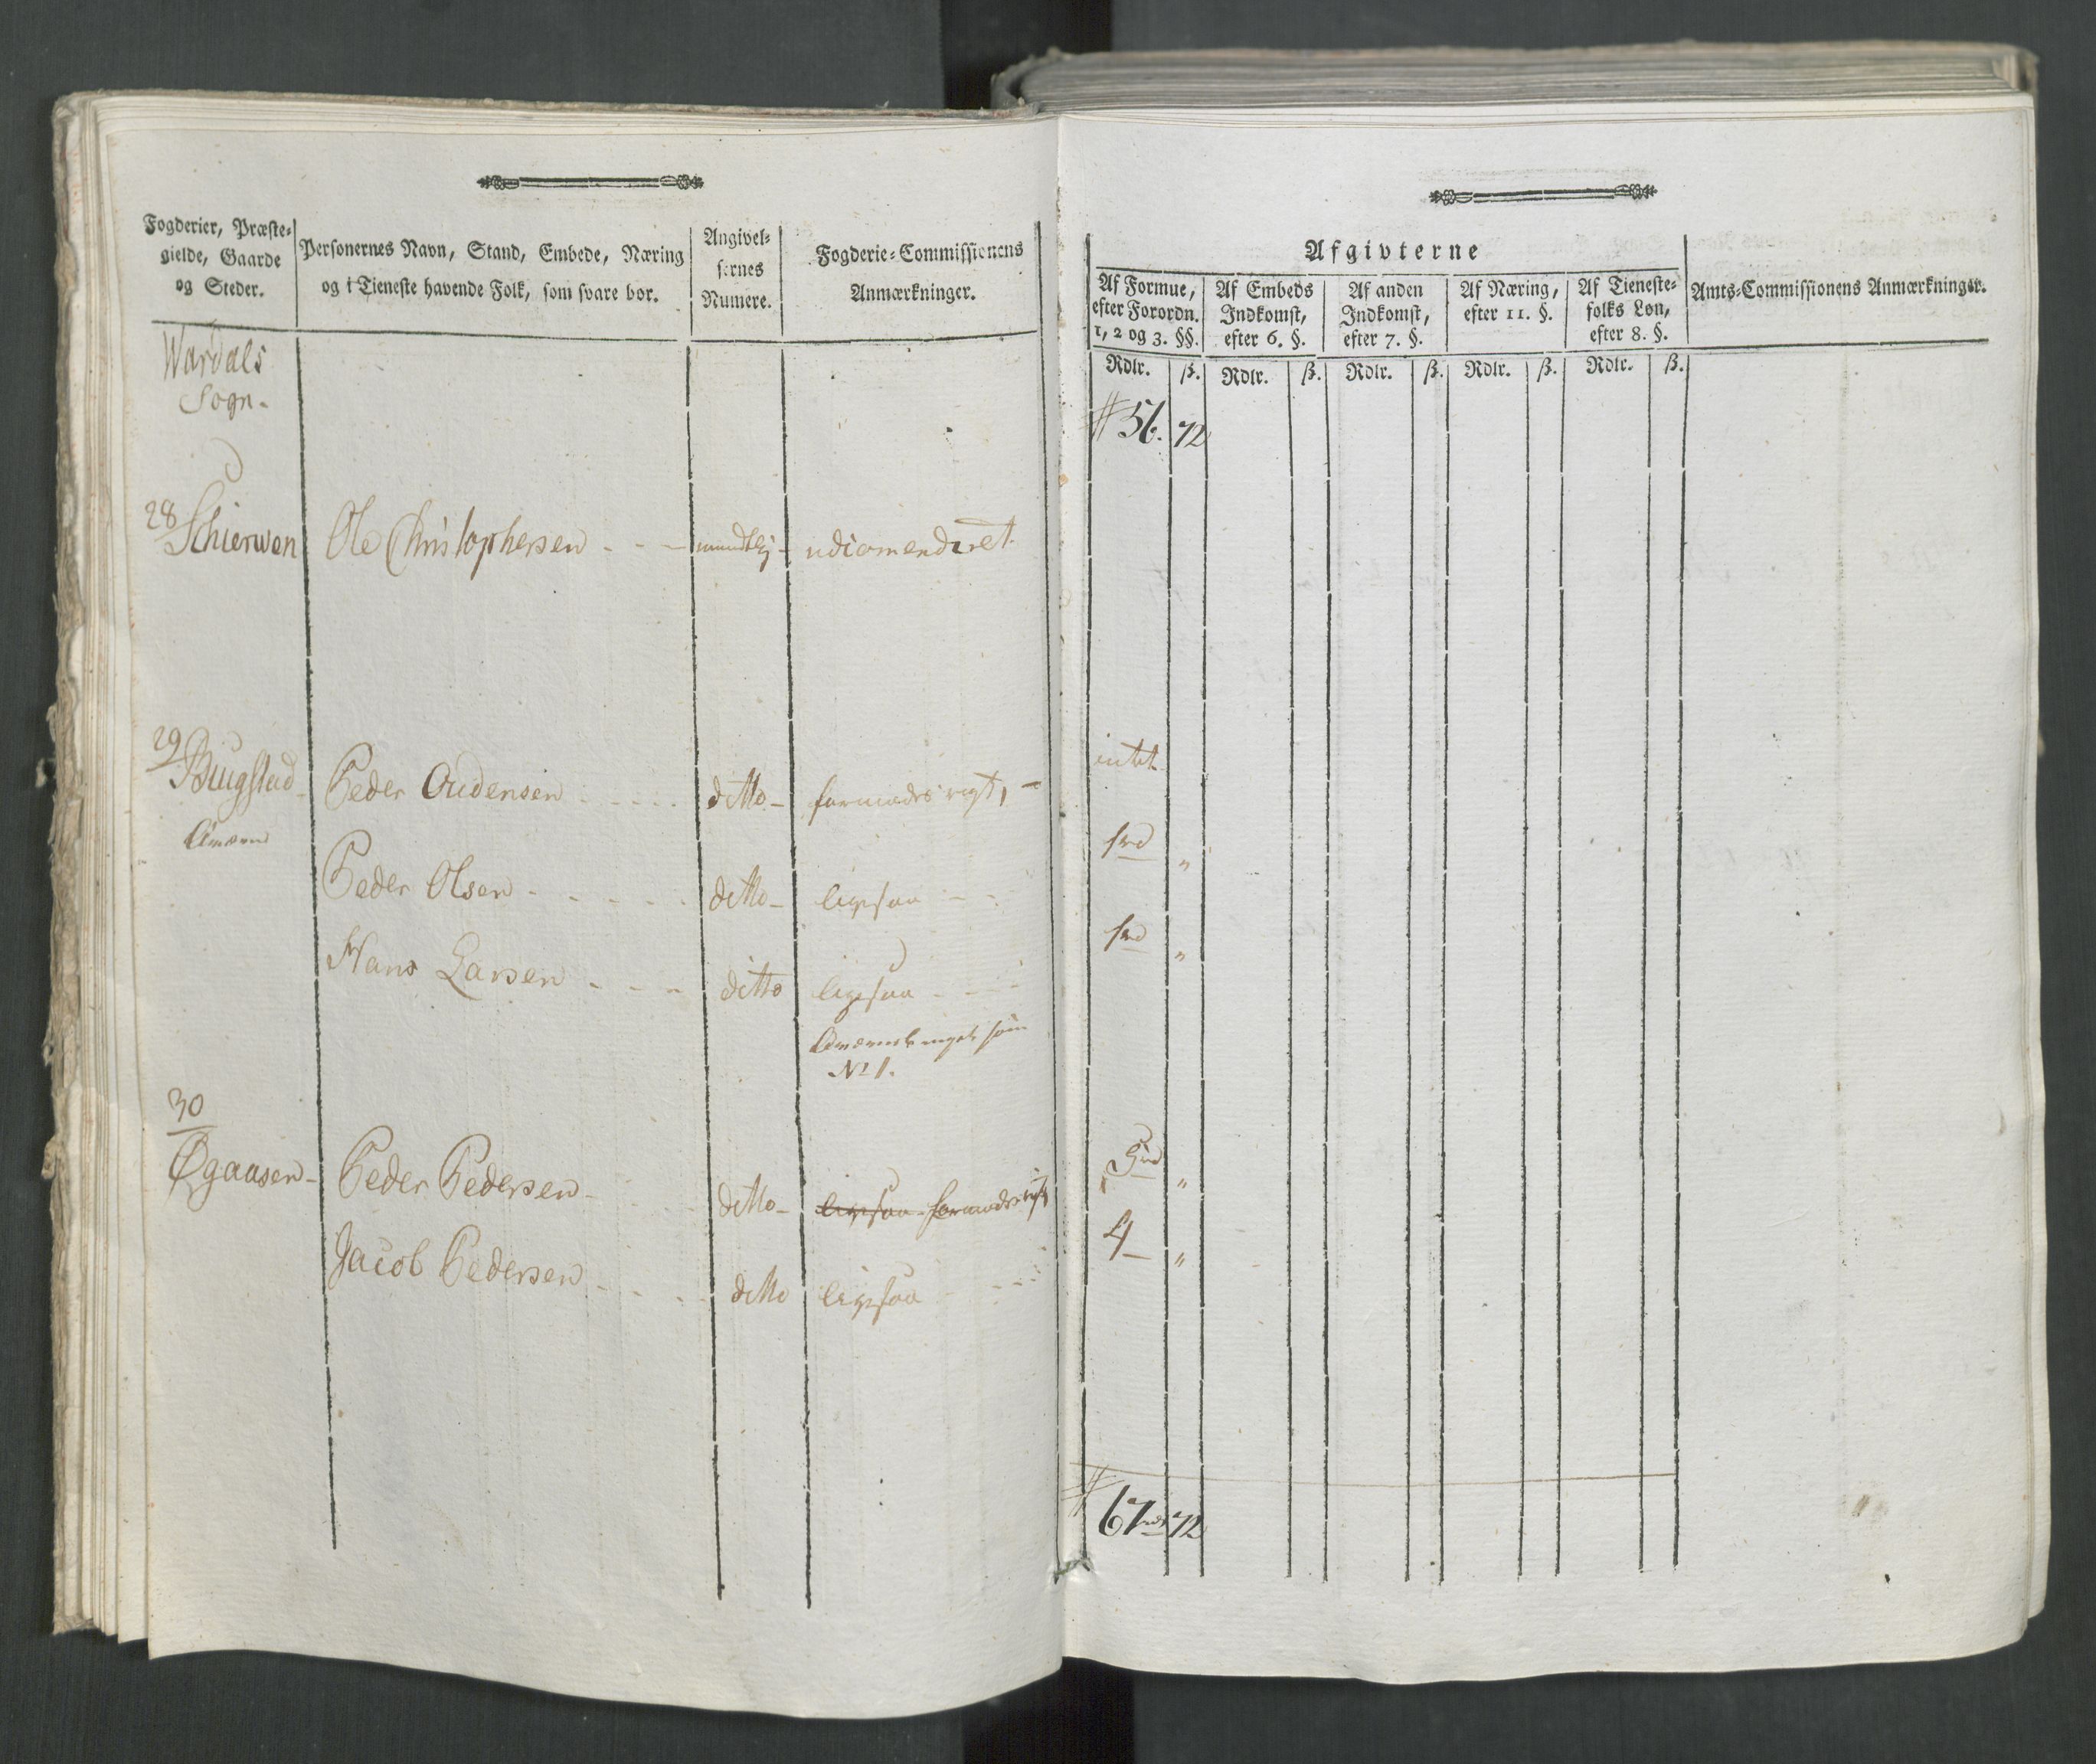 Fogderier, Præste-
gielde, Gaarde
og Steder.
Personernes Navn, Stand, Embede, Næring
og i Tieneste havende Folk, som svare bør.
Angivel-
sernes
Numere.
Fogderie-Commissionens
Anmærkninger.
Wardals
Sogn.
28
Schierwen Ole Christophersen - - - mundtlig
29
Peder Oudensen - - - - ditto - formuds
Peder Olsen - - - - - ditto - ligesaa - -
Hans Larsen - - - ditto ligesaa - - -
som
No 1.
30
Øgaasen - Peder Pedersen - ditto - ligesaa
Jacob Pedersen - - - - ditto ligesaa - - -
Afgivterne
Af Formue,
efter Forordn.
1, 2 og 3. §§.
Af Embeds
Indkomst,
efter 6. §.
Af anden
Indkomst,
efter 7. §.
Af Næring,
efter 11. §.
Af Tieneste-
folks Løn,
efter 8. §.
Amts-Commissionens Anmærkninger.
Rdlr. ß. Rdlr. ß. Rdlr. ß. Rdlr. ß. Rdlr. ß.
56. 72
intet
4 - "
67 72